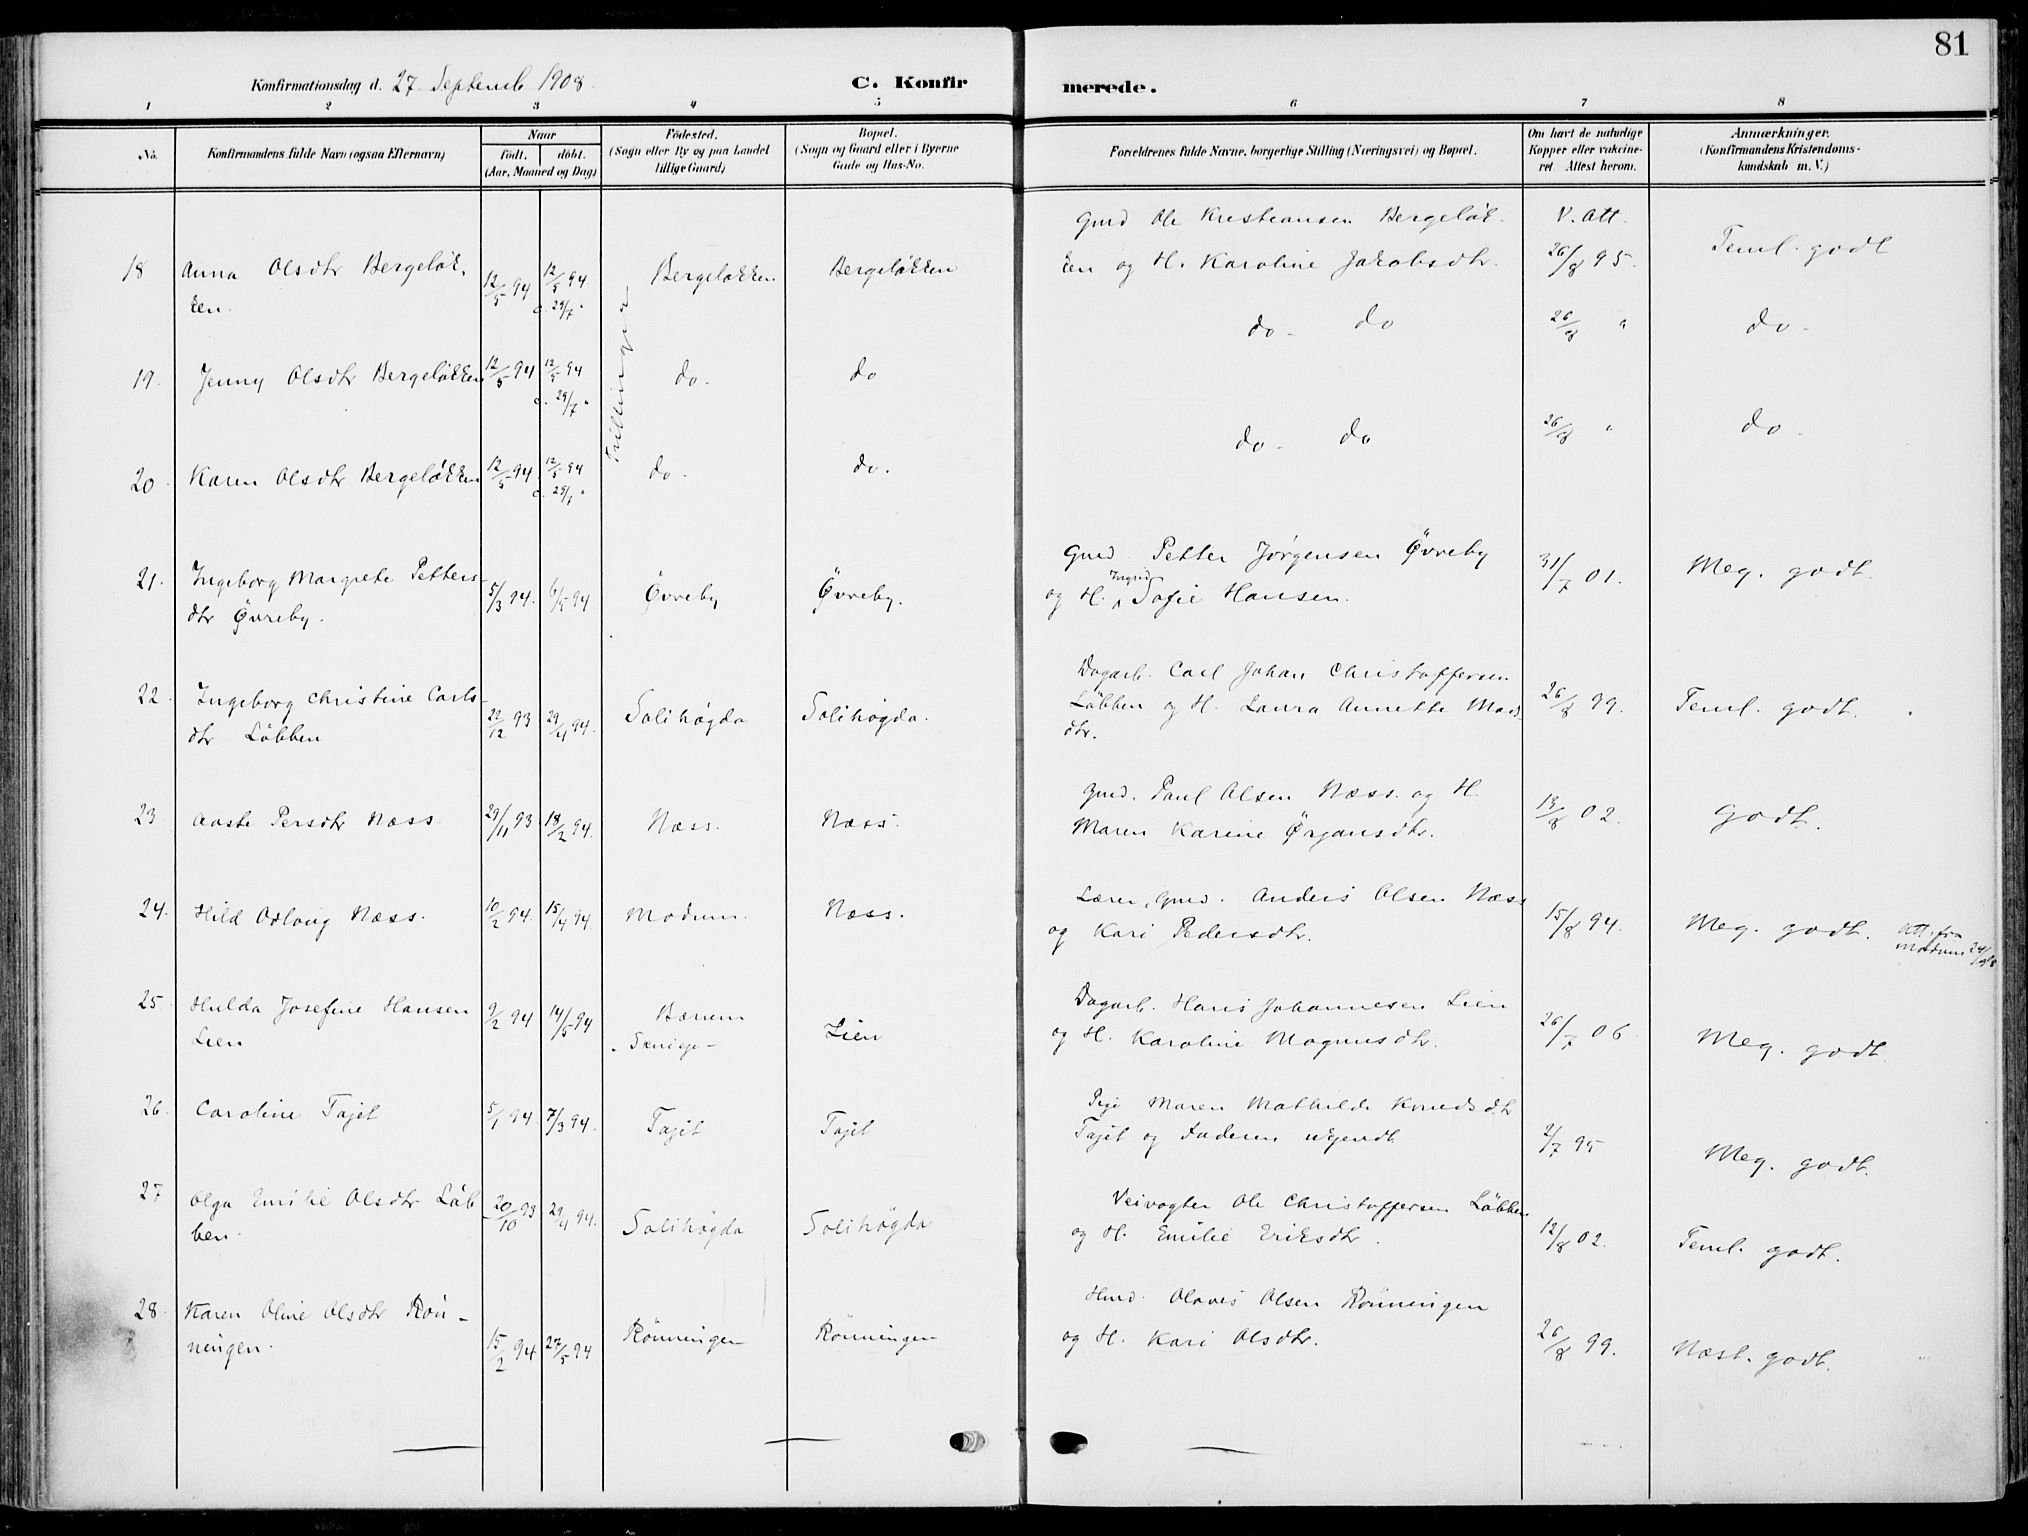 81
Konfirmationsdag d. 27 Septemb. 1908.
C. Konfirmerede.
1 2 3 4 5 6 7 8
No.
Konfirmandens fulde Navn (ogsaa Efternavn)
Naar
födt. döbt.
(Aar, Maaned og Dag)
Födested.
(Sogn eller By og paa Landet
tillige Gaard)
Bopæl.
(Sogn og Gaard eller i Byerne
Gade og Hus-No.
Forældrenes fulde Navne, borgerlige Stilling (Næringsvei) og Bopæl.
Om havt de naturlige
Kopper eller vakcine-
ret. Attest herom.
Anmærkninger.
(Konfirmandens Kristendoms-
kundskab m. V.)
Trillinger
18 Anna Olsdtr Bergeløk- 12/5 94 12/5 94 Bergeløkken Bergeløkken Gmd Ole Kristiansen Bergeløk- V. Att.
ken. c. 29/7 " ken og H. Karoline Jakobsdtr. 26/8 95. Teml. godt
19. Jenny Olsdtr Bergeløkken 12/5 94 12/5 94 do. do do - do 26/8 " do -
c. 29/7 "
20. Karen Olsdtr Bergeløkken 12/5 94 12/5 94 do. do. do - do 26/8 " do -
c. 29/7 "
21. Ingeborg Margrete Petters- 5/3 94. 94. Øvreby Øvreby. Gmd. Petter Jørgensen Øvreby 31/7 01. Meg. godt.
dtr Øvreby. og H. Ingrid Sofie Hansen.
22. Ingeborg Christine Carls- 22/12 93 29/4 94. Solihøgda Solihøgda. Dagarb. Carl Johan Christoffersen 26/8 99. Teml. godt.
dtr Løbben Løbben og H. Laura Annette Mads
dtr.
23 Aaste Persdtr Næss 29/11 93 18/2 94. Næss. Næss. Gmd. Paul Olsen Næss. og H. 13/8 02. Godt.
Maren Karine Ørgansdtr.
24. Hild Aslaug Næss. 10/2 94. 15/4 94. Modum. Næss. Lærer, Gmd. Anders Olsen Næss 15/8 94. Meg. godt. Att. fra
og Kari Pedersdtr. Modum 24/9 08
25 Hulda Josefine Hansen 9/2 94 14/5 94 Bærum Lien Dagarb. Hans Johannesen Lien 26/7 06. Meg. godt.
Lien og H. Karoline Magnusdtr.
26. Caroline Tajet 5/1 94. 7/3 94. Tajet Tajet Pige Maren Mathilde Knudsdtr 2/7 95 Meg. godt.
Tajet og Faderen ukjendt
27 Olga Emilie Olsdtr Løb 20/10 93 29/4 94. Solihøgda Solihøgda Veivogter Ole Christoffersen Løbben 12/8 02. Teml. godt.
ben. og H. Emilie Eriksdtr.
28. Karen Oline Olsdtr Røn- 15/2 94 27/5 94 Rønningen Rønningen Hmd. Olaves Olsen Rønningen 26/8 99. Næst. godt.
ningen. og H. Kari Olsdtr.